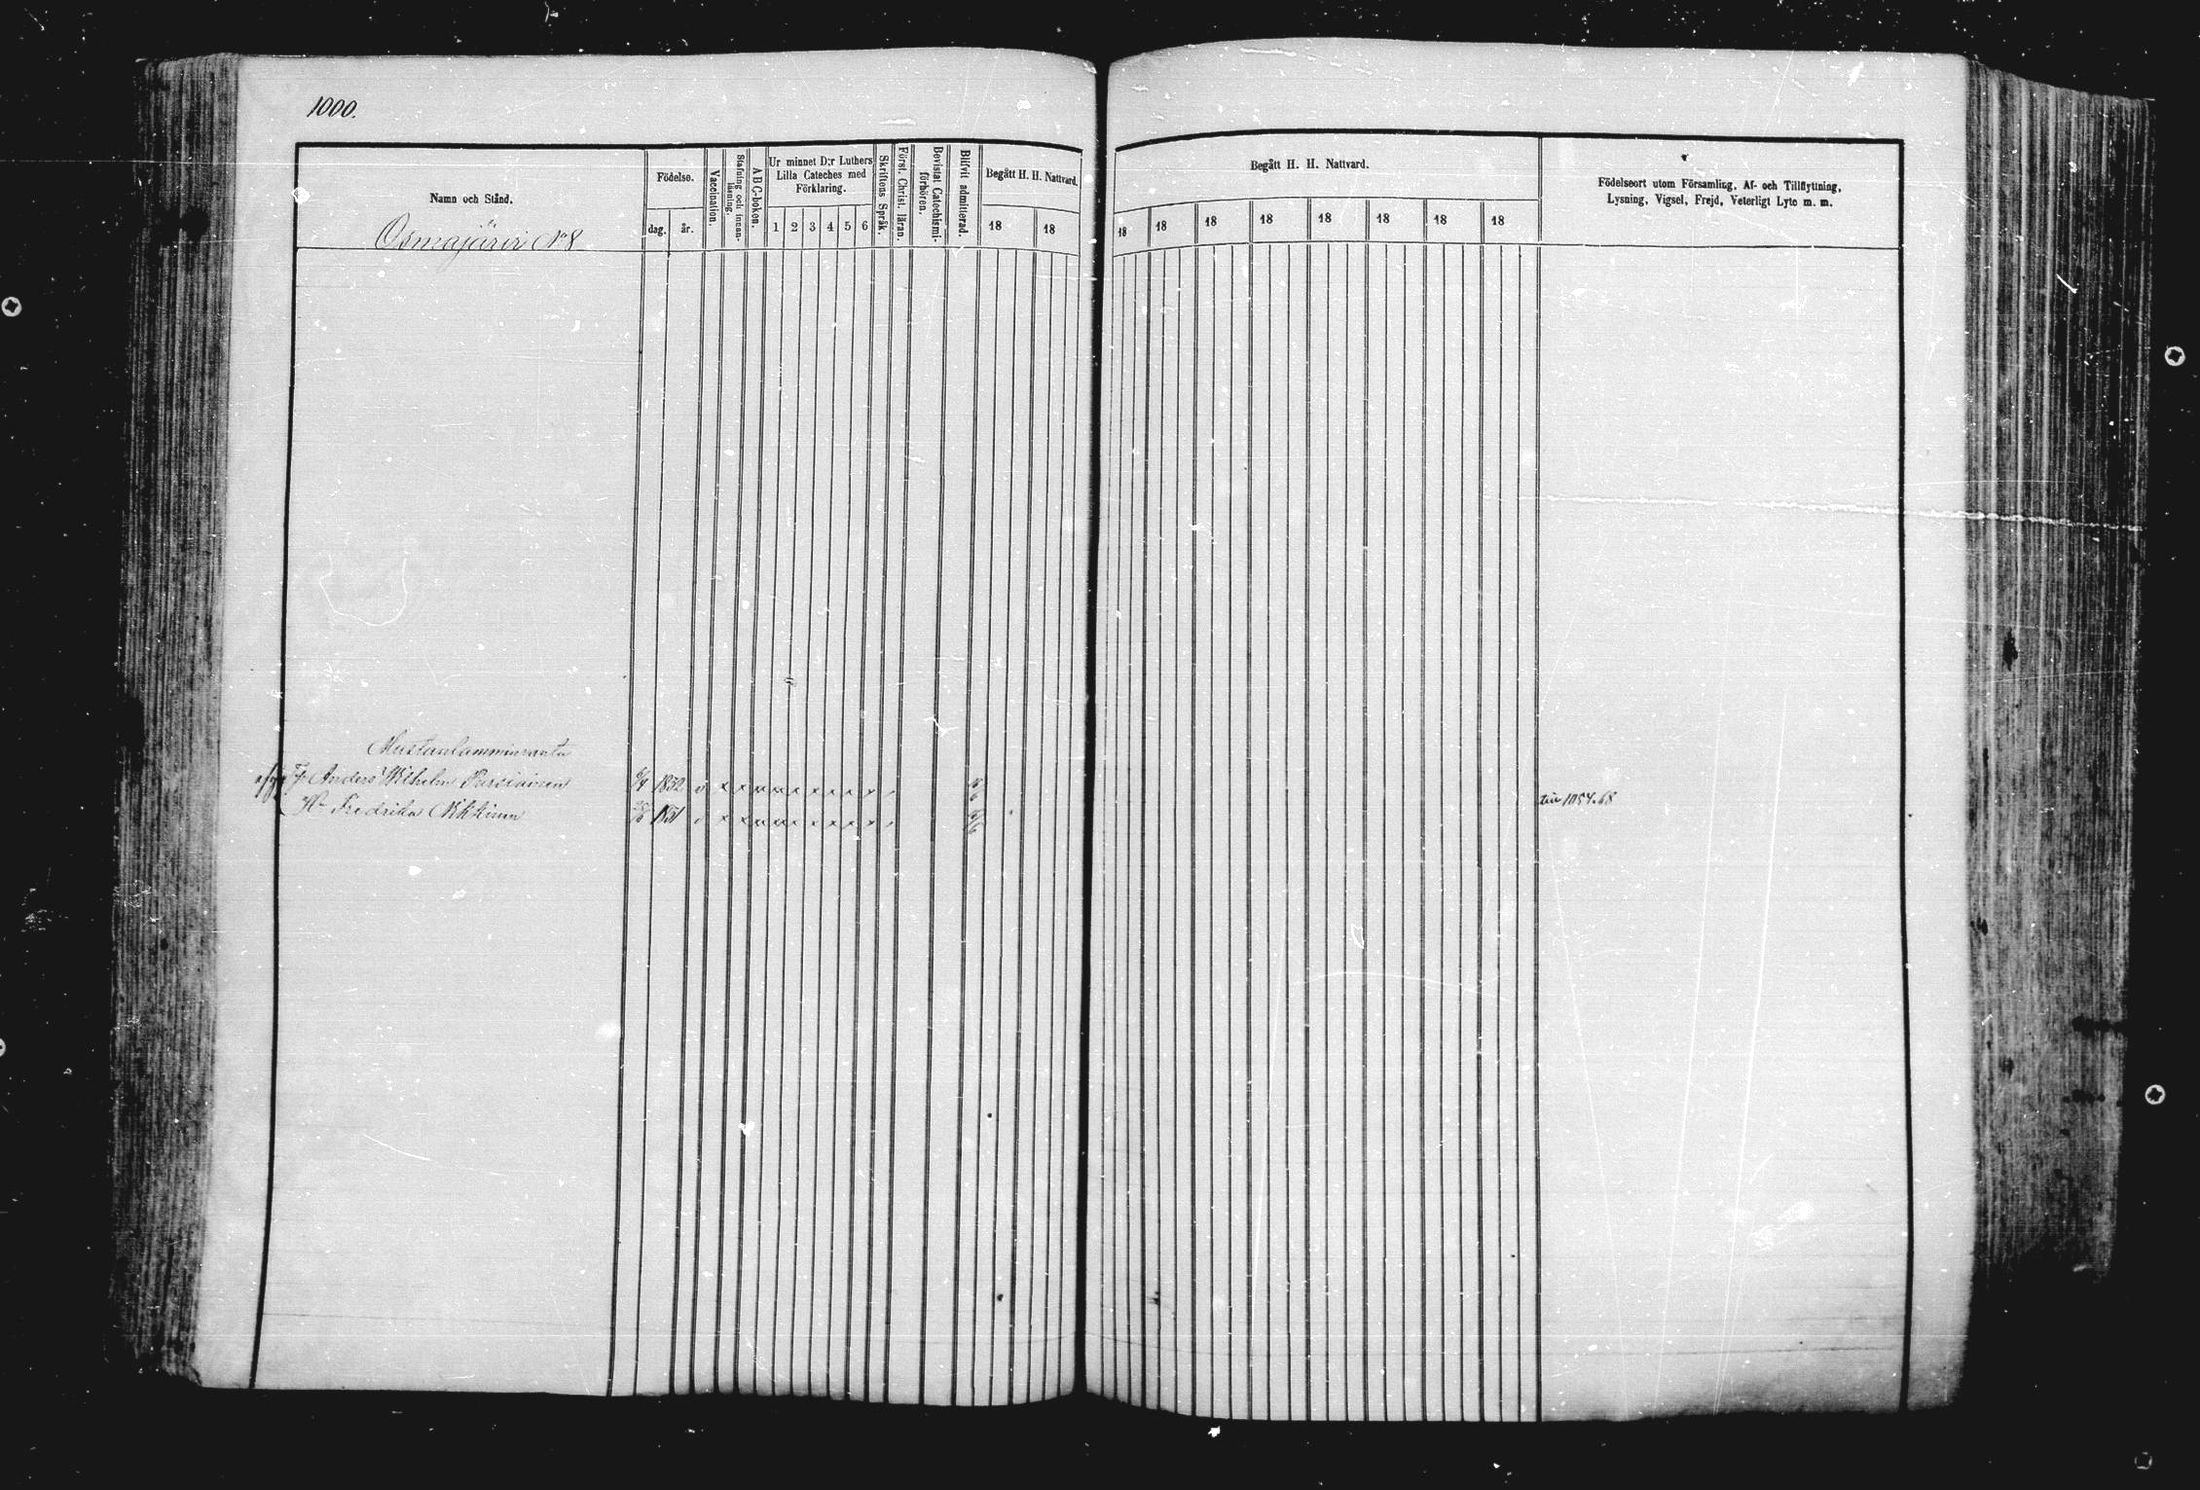 1000.
Namn och Stånd.
Osmajärvi N:o 8
Födelse.
dag.
år.
Vaccination.
Stafning och innan-
läsning.
A B C-boken.
Ur minnet D:r Luthers
Lilla Cateches med
Förklaring.
1 2 3 4 5 6
Skriftens Språk.
Först. Christ. läran.
Bevistat Catechismi-
förhören.
Blifvit admitterad.
Begått H. H. Nattvard.
18 18
Begått H. H. Nattvard.
18 18 18 18 18 18 18 18
Födelseort utom Församling, Af- och Tillflyttning,
Lysning, Vigsel, Frejd, Veterligt Lyte m. m.
Mustanlamminranta
Anders Wilhelm 1832 x x x x x x x x
H:u Fredrika 1831 x x x x x x x x
1054.68